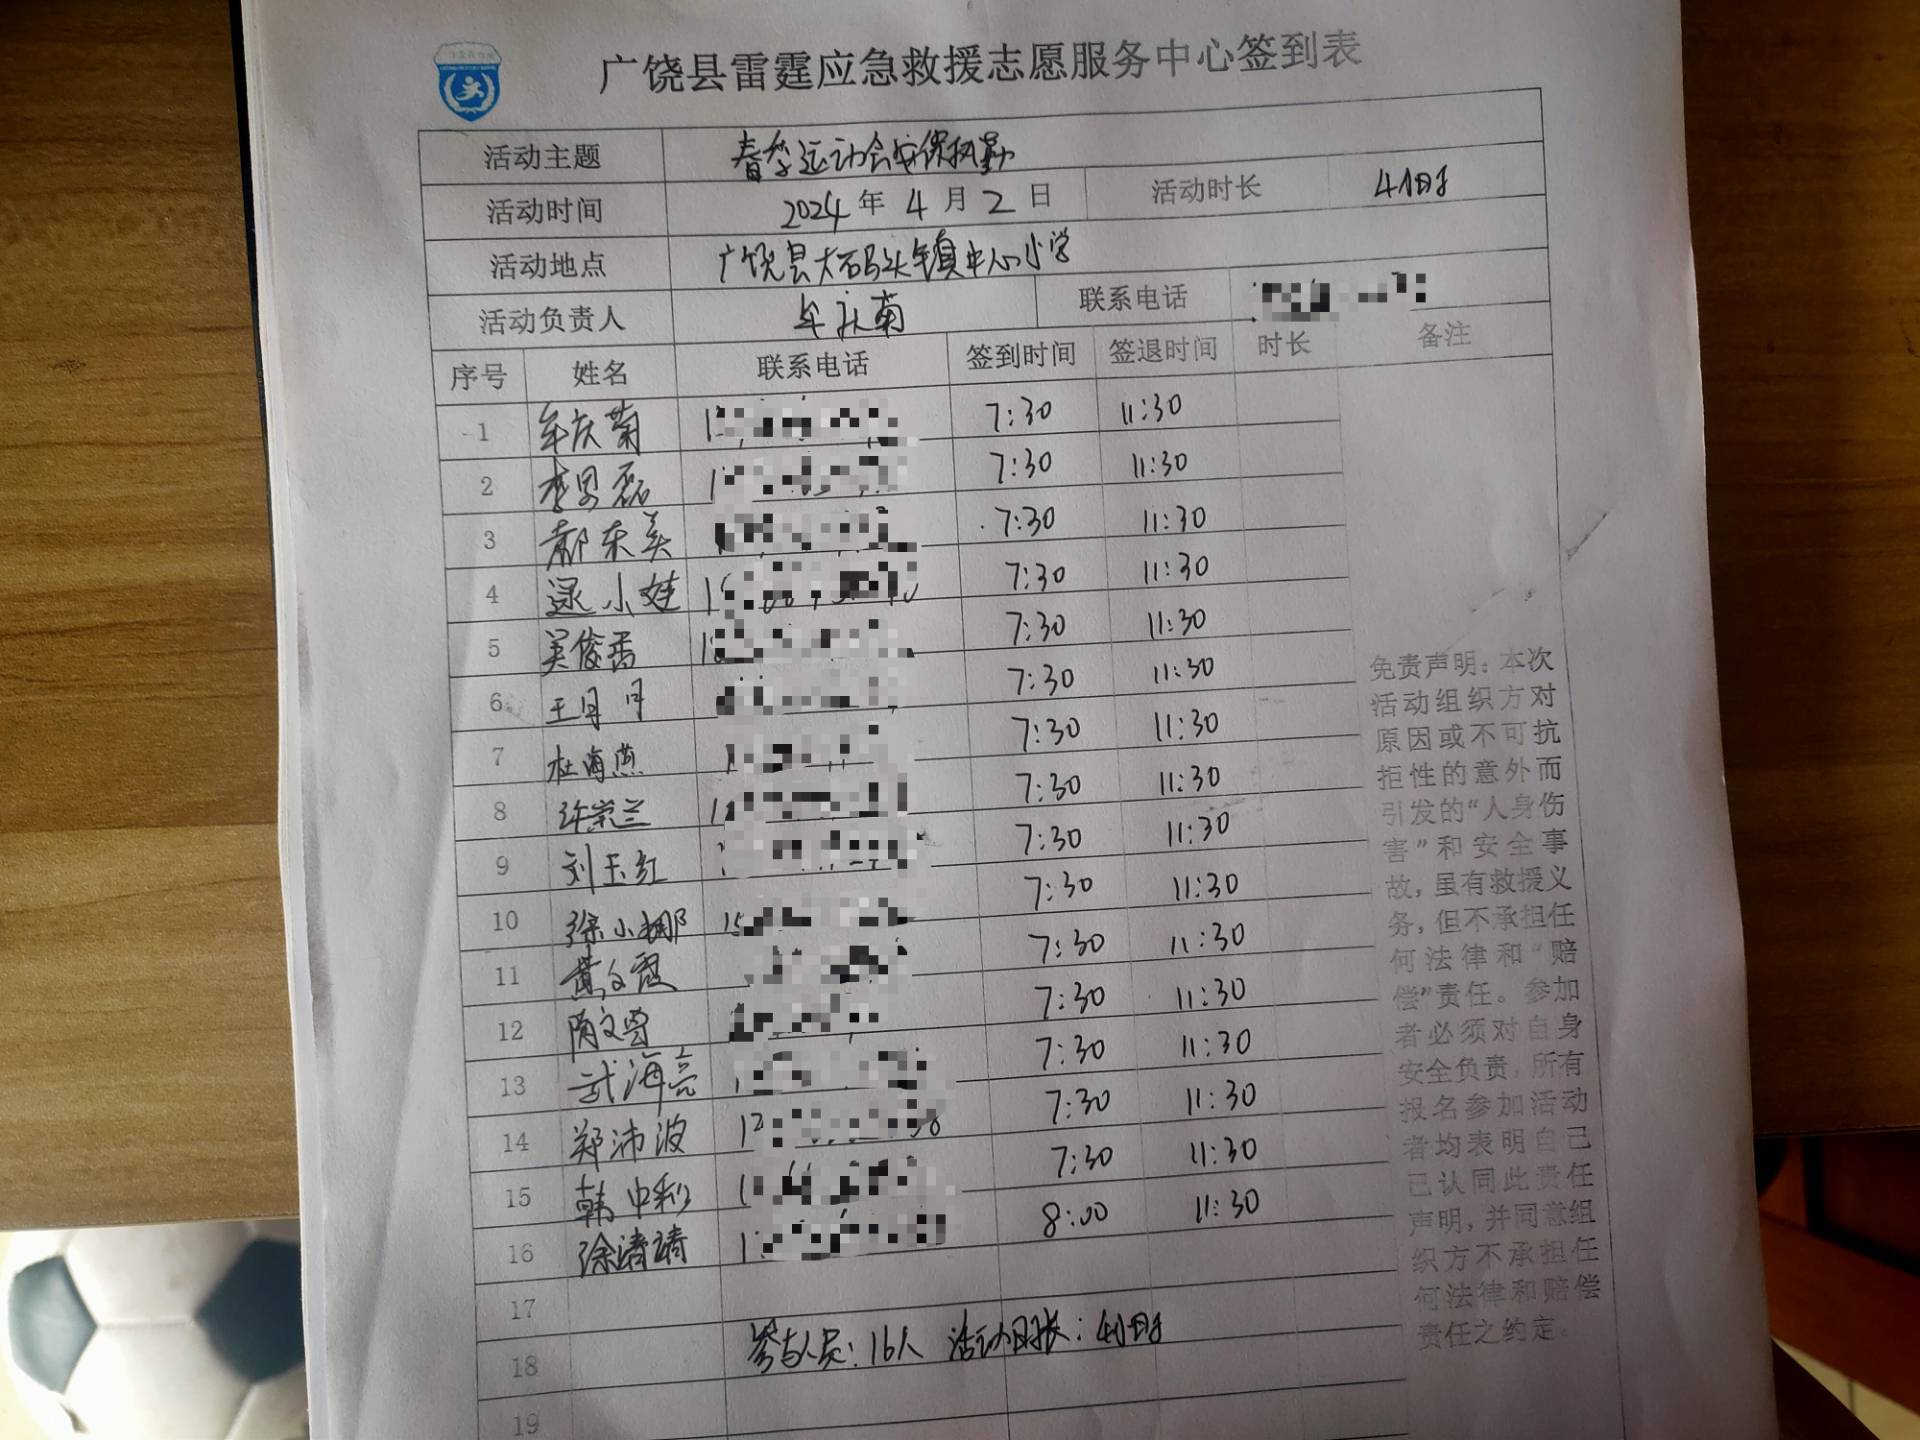 广饶县雷霆应急救援志愿服务中心签到表
活动主题 春季运动会安保执勤
活动时间 2024 年 4 月 2 日 活动时长 4小时
活动地点 广饶县大码头镇中心小学
活动负责人 牟庆菊 联系电话
序号 姓名 联系电话 签到时间 签退时间 时长 备注
1 牟庆菊 7:30 11:30
2 李男磊 7:30 11:30
3 郝东美 7:30 11:30
4 逯小娃 7:30 11:30
5 吴俊香 7:30 11:30
6 王月月 7:30 11:30
7 杜海燕 7:30 11:30
8 许崇兰 7:30 11:30
9 刘玉红 7:30 11:30
10 徐小娜 7:30 11:30
11 黄文霞 7:30 11:30
12 隋文曾 7:30 11:30
13 武海亮 7:30 11:30
14 郑沛波 7:30 11:30
15 韩中彩 7:30 11:30
16 徐清靖 8:00 11:30
17
18 参与人员：16人 活动时长：4小时
19
免责声明：本次
活动组织方对
原因或不可抗
拒性的意外而
引发的“人身伤
害”和安全事
故，虽有救援义
务，但不承担任
何法律和“赔
偿”责任。参加
者必须对自身
安全负责，所有
报名参加活动
者均表明自己
已认同此责任
声明，并同意组
织方不承担任
何法律和赔偿
责任之约定。